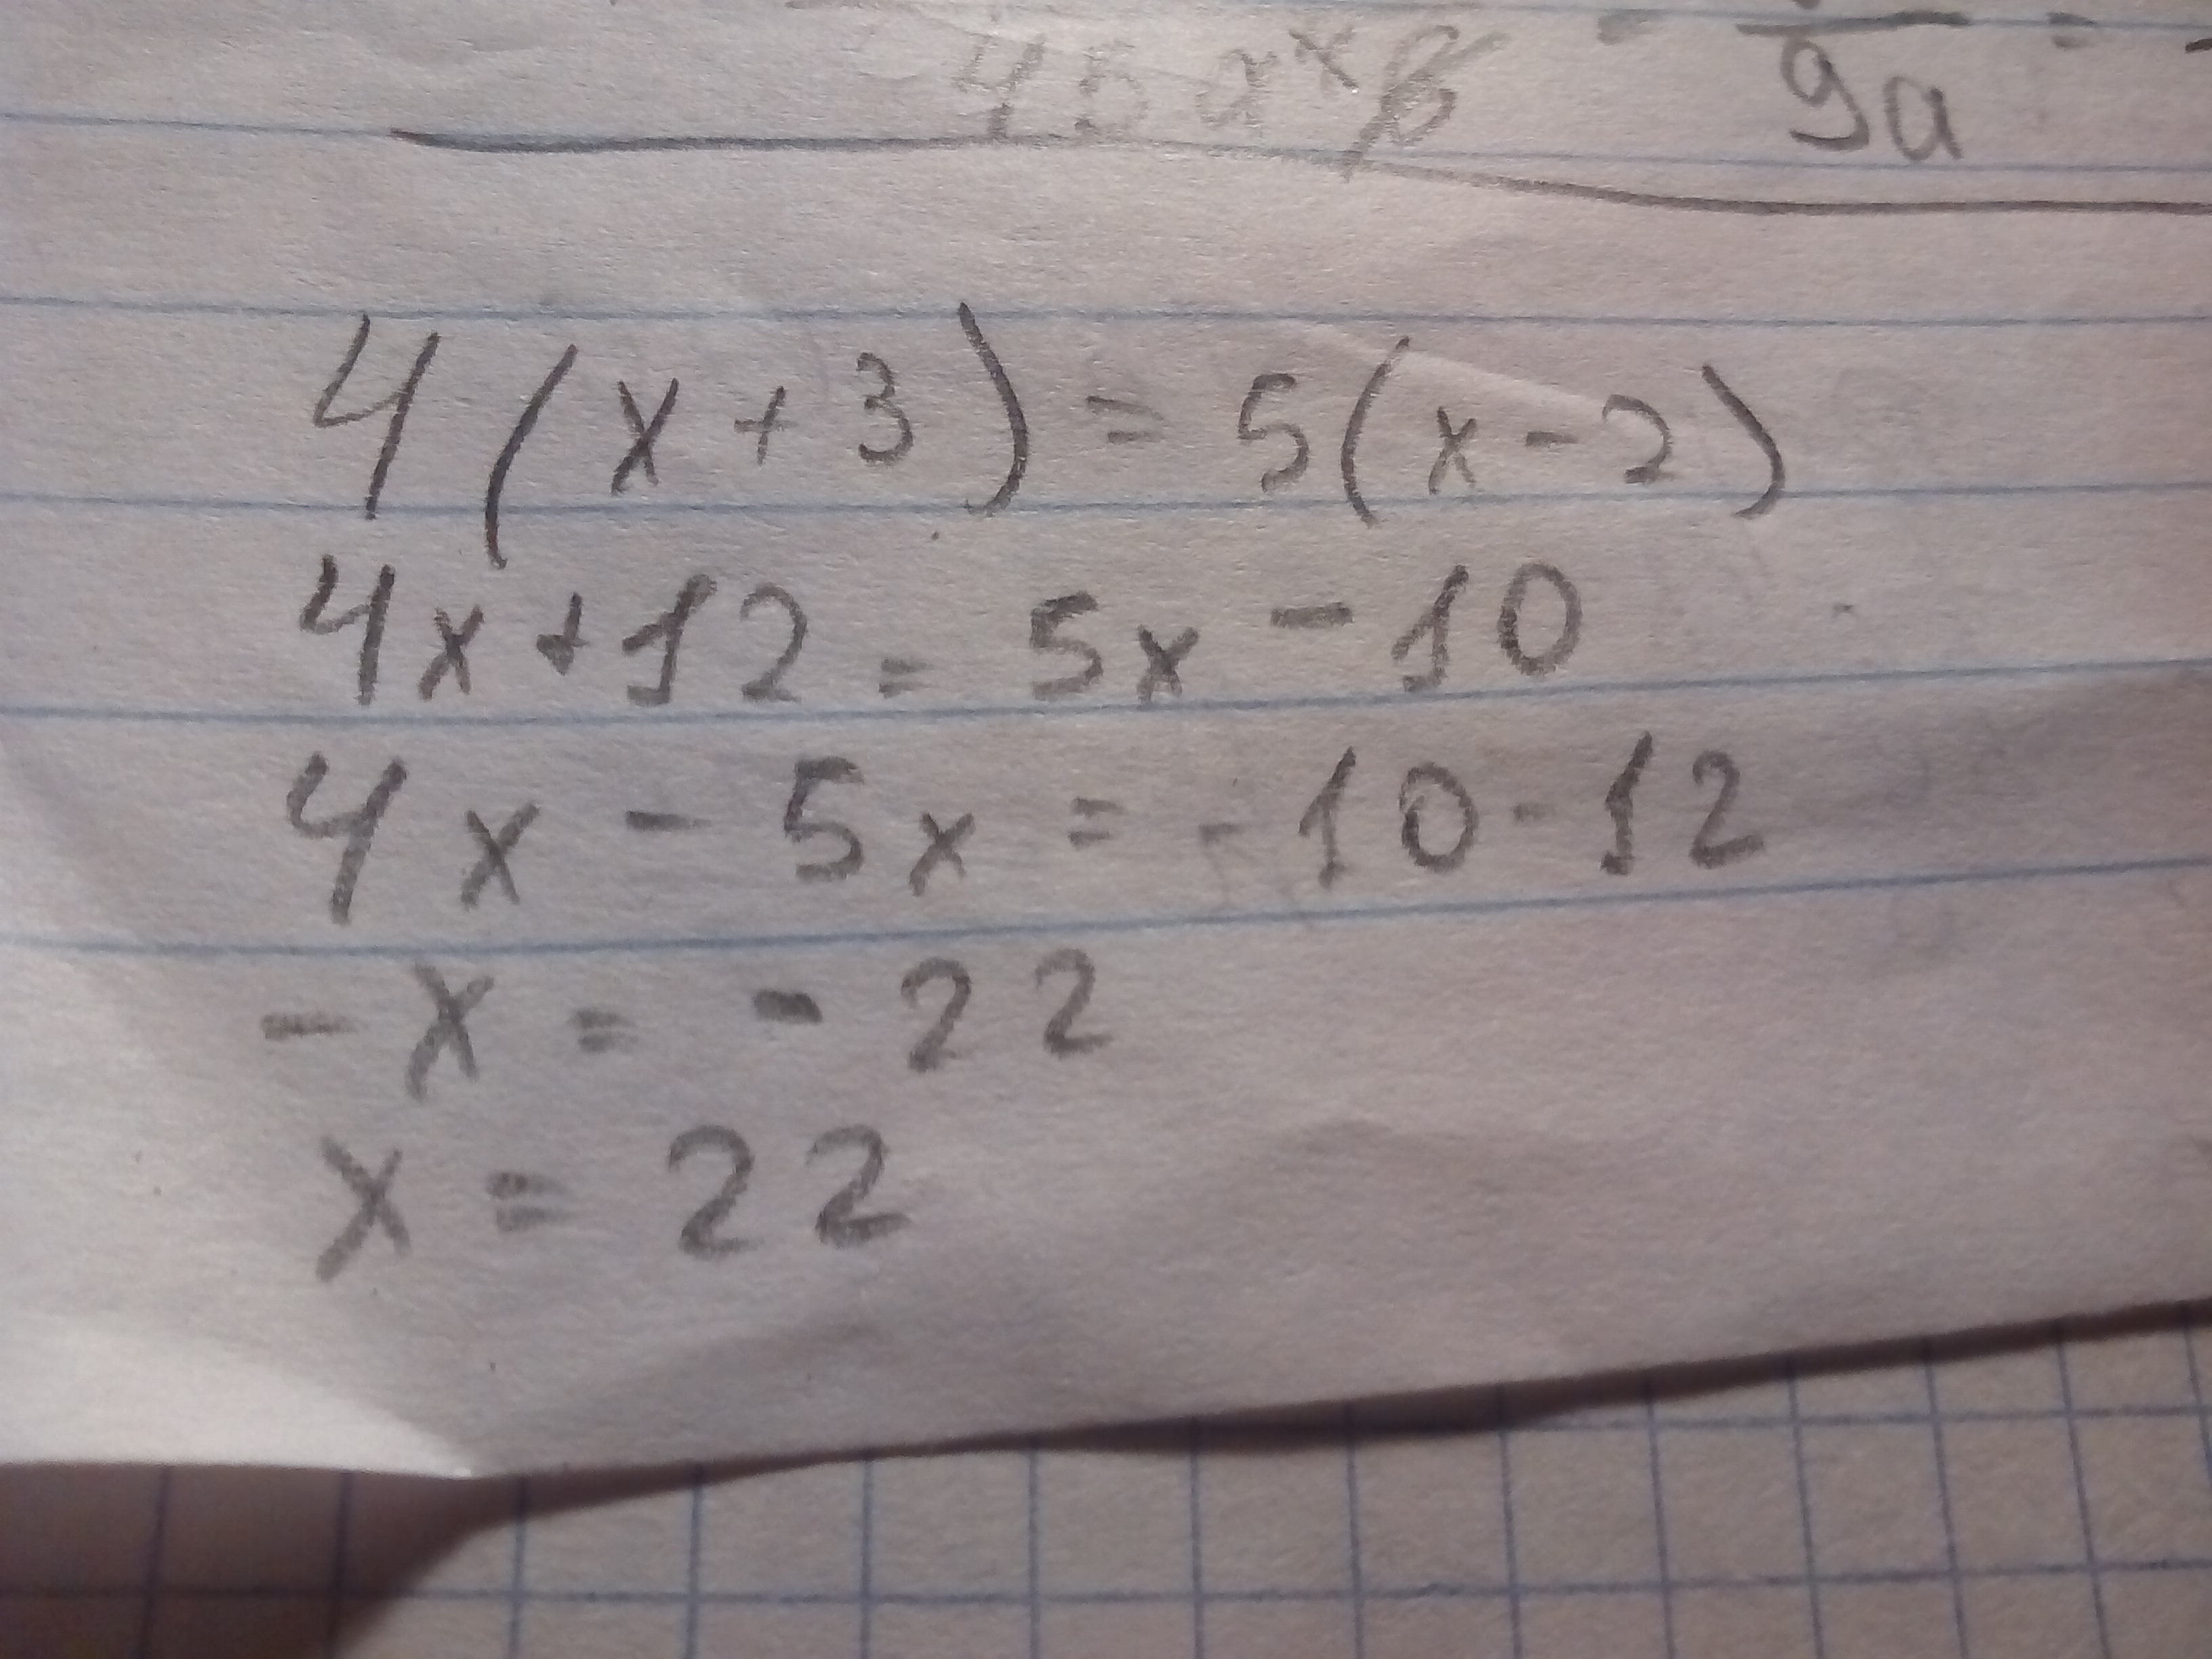 45a^x b - /9a = -
4(x+3)=5(x-2)
4x+12=5x-10
4x-5x=-10-12
-x=-22
x=22